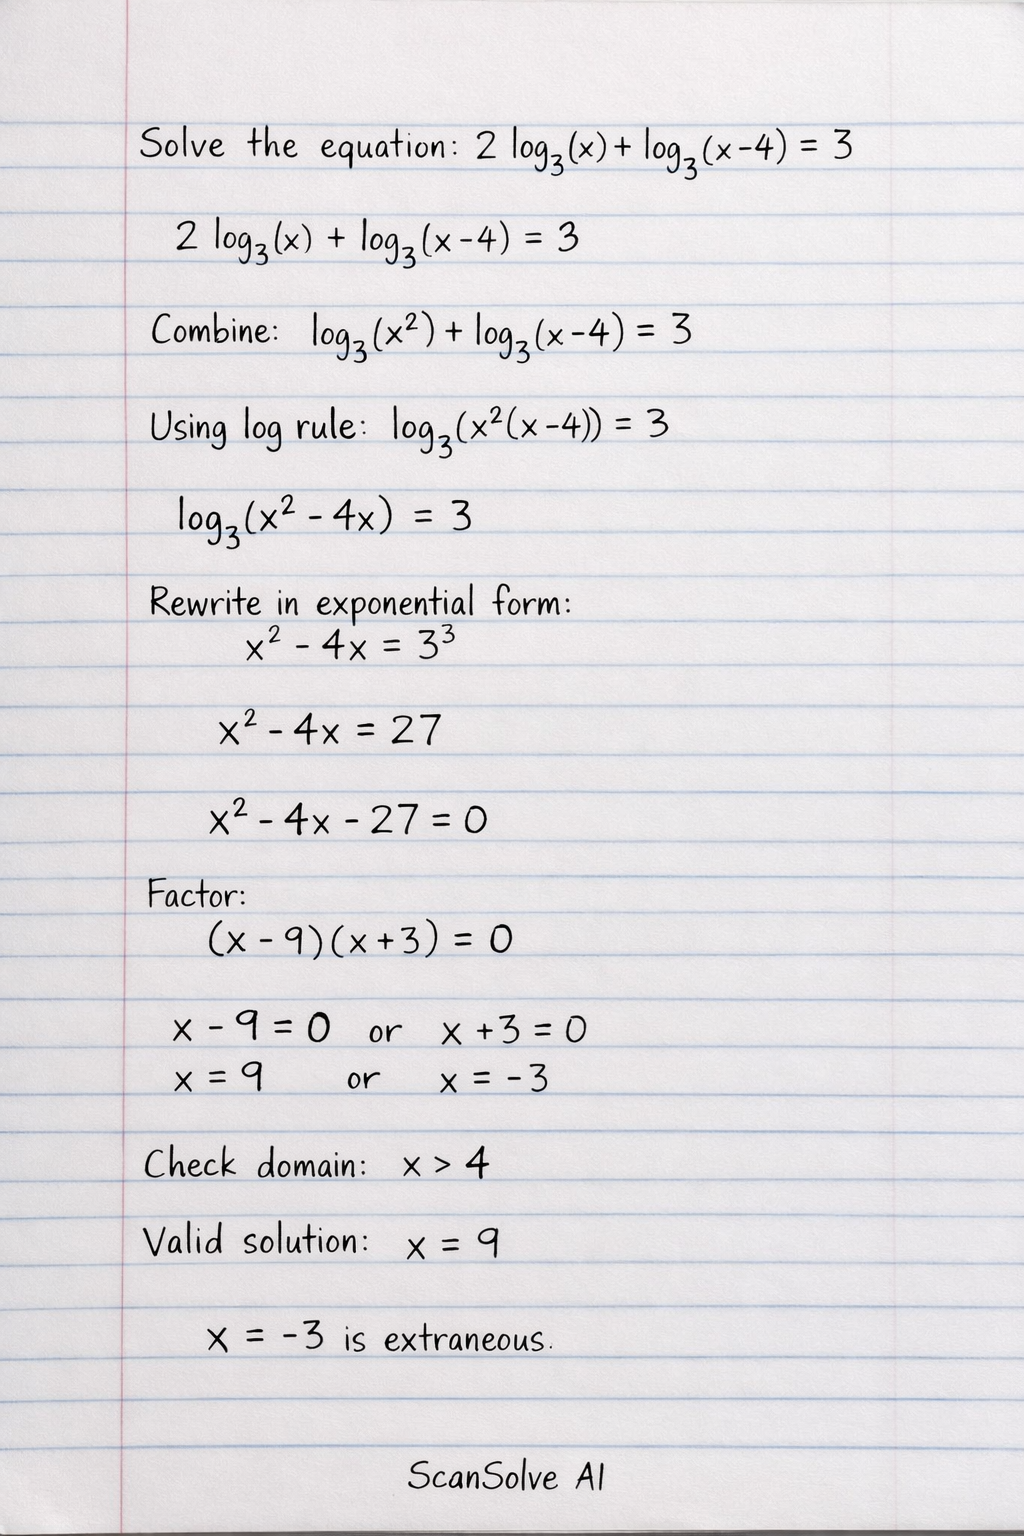 Solve the equation: 2 log₃(x) + log₃(x-4) = 3
2 log₃(x) + log₃(x-4) = 3
Combine: log₃(x²) + log₃(x-4) = 3
Using log rule: log₃(x²(x-4)) = 3
log₃(x² - 4x) = 3
Rewrite in exponential form:
x² - 4x = 3³
x² - 4x = 27
x² - 4x - 27 = 0
Factor:
(x - 9)(x + 3) = 0
x - 9 = 0 or x + 3 = 0
x = 9 or x = -3
Check domain: x > 4
Valid solution: x = 9
x = -3 is extraneous.
ScanSolve AI